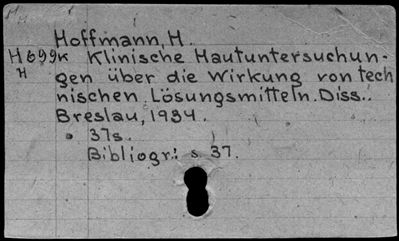 Hoffmann, H.
H699k Klinische Hautuntersuchun-
H gen über die Wirkung von tech
nischen Lösungsmitteln. Diss..
Breslau, 1934.
37s.
Bibliogr.: s. 37.